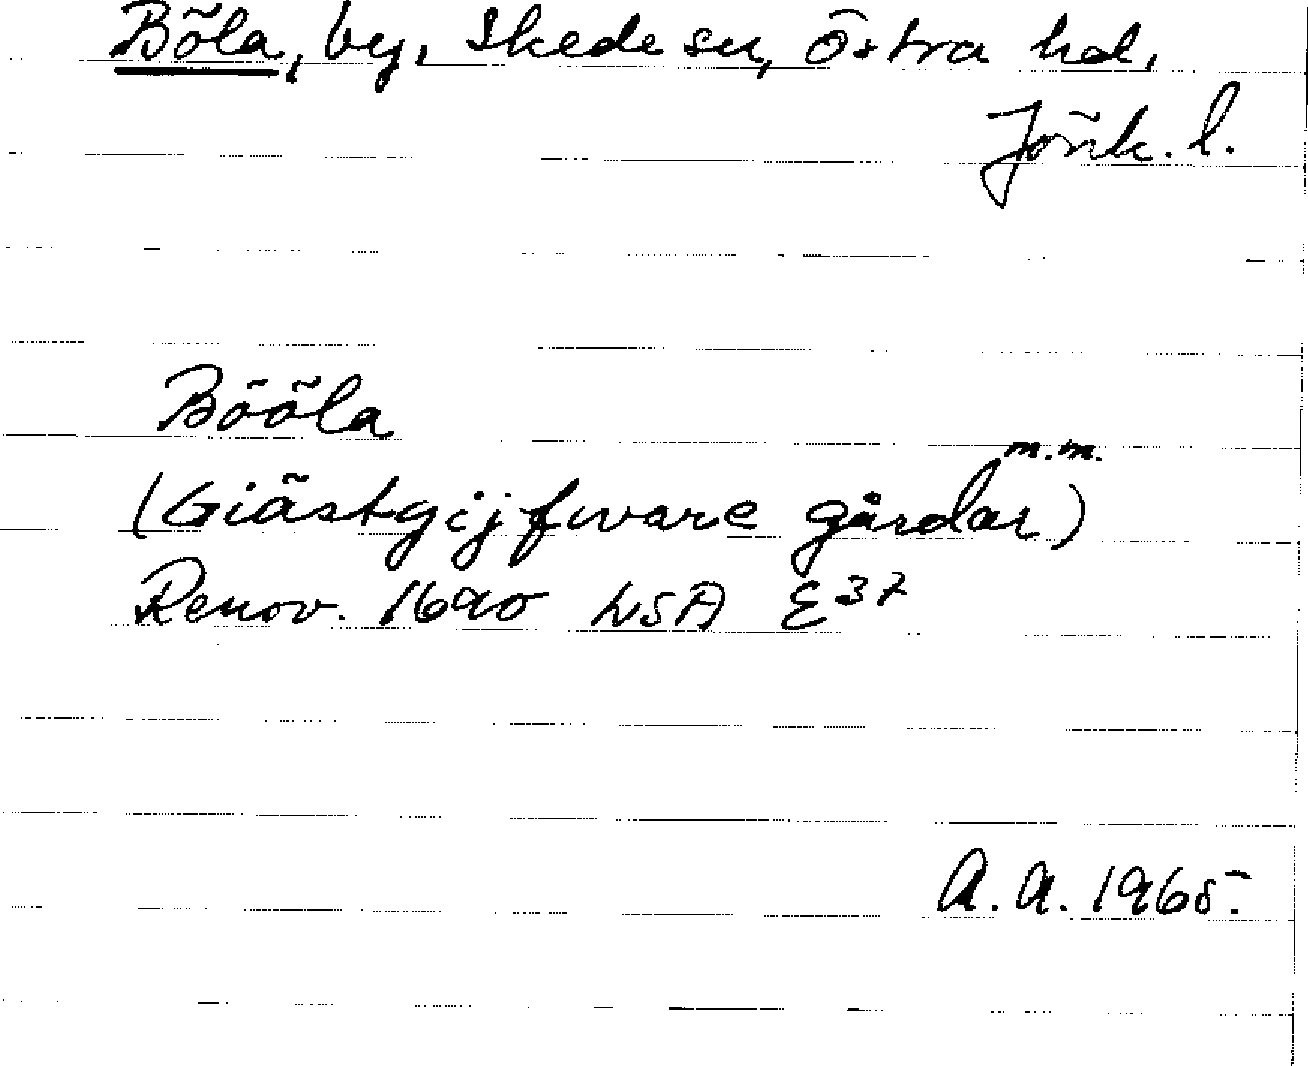 Böla, by, Skede sn, Östra hd,
Jönk. l.
Bööla
m.m.
(Giästgijfware gårdar)
Renov. 1690 LSA E37
A.A. 1965.